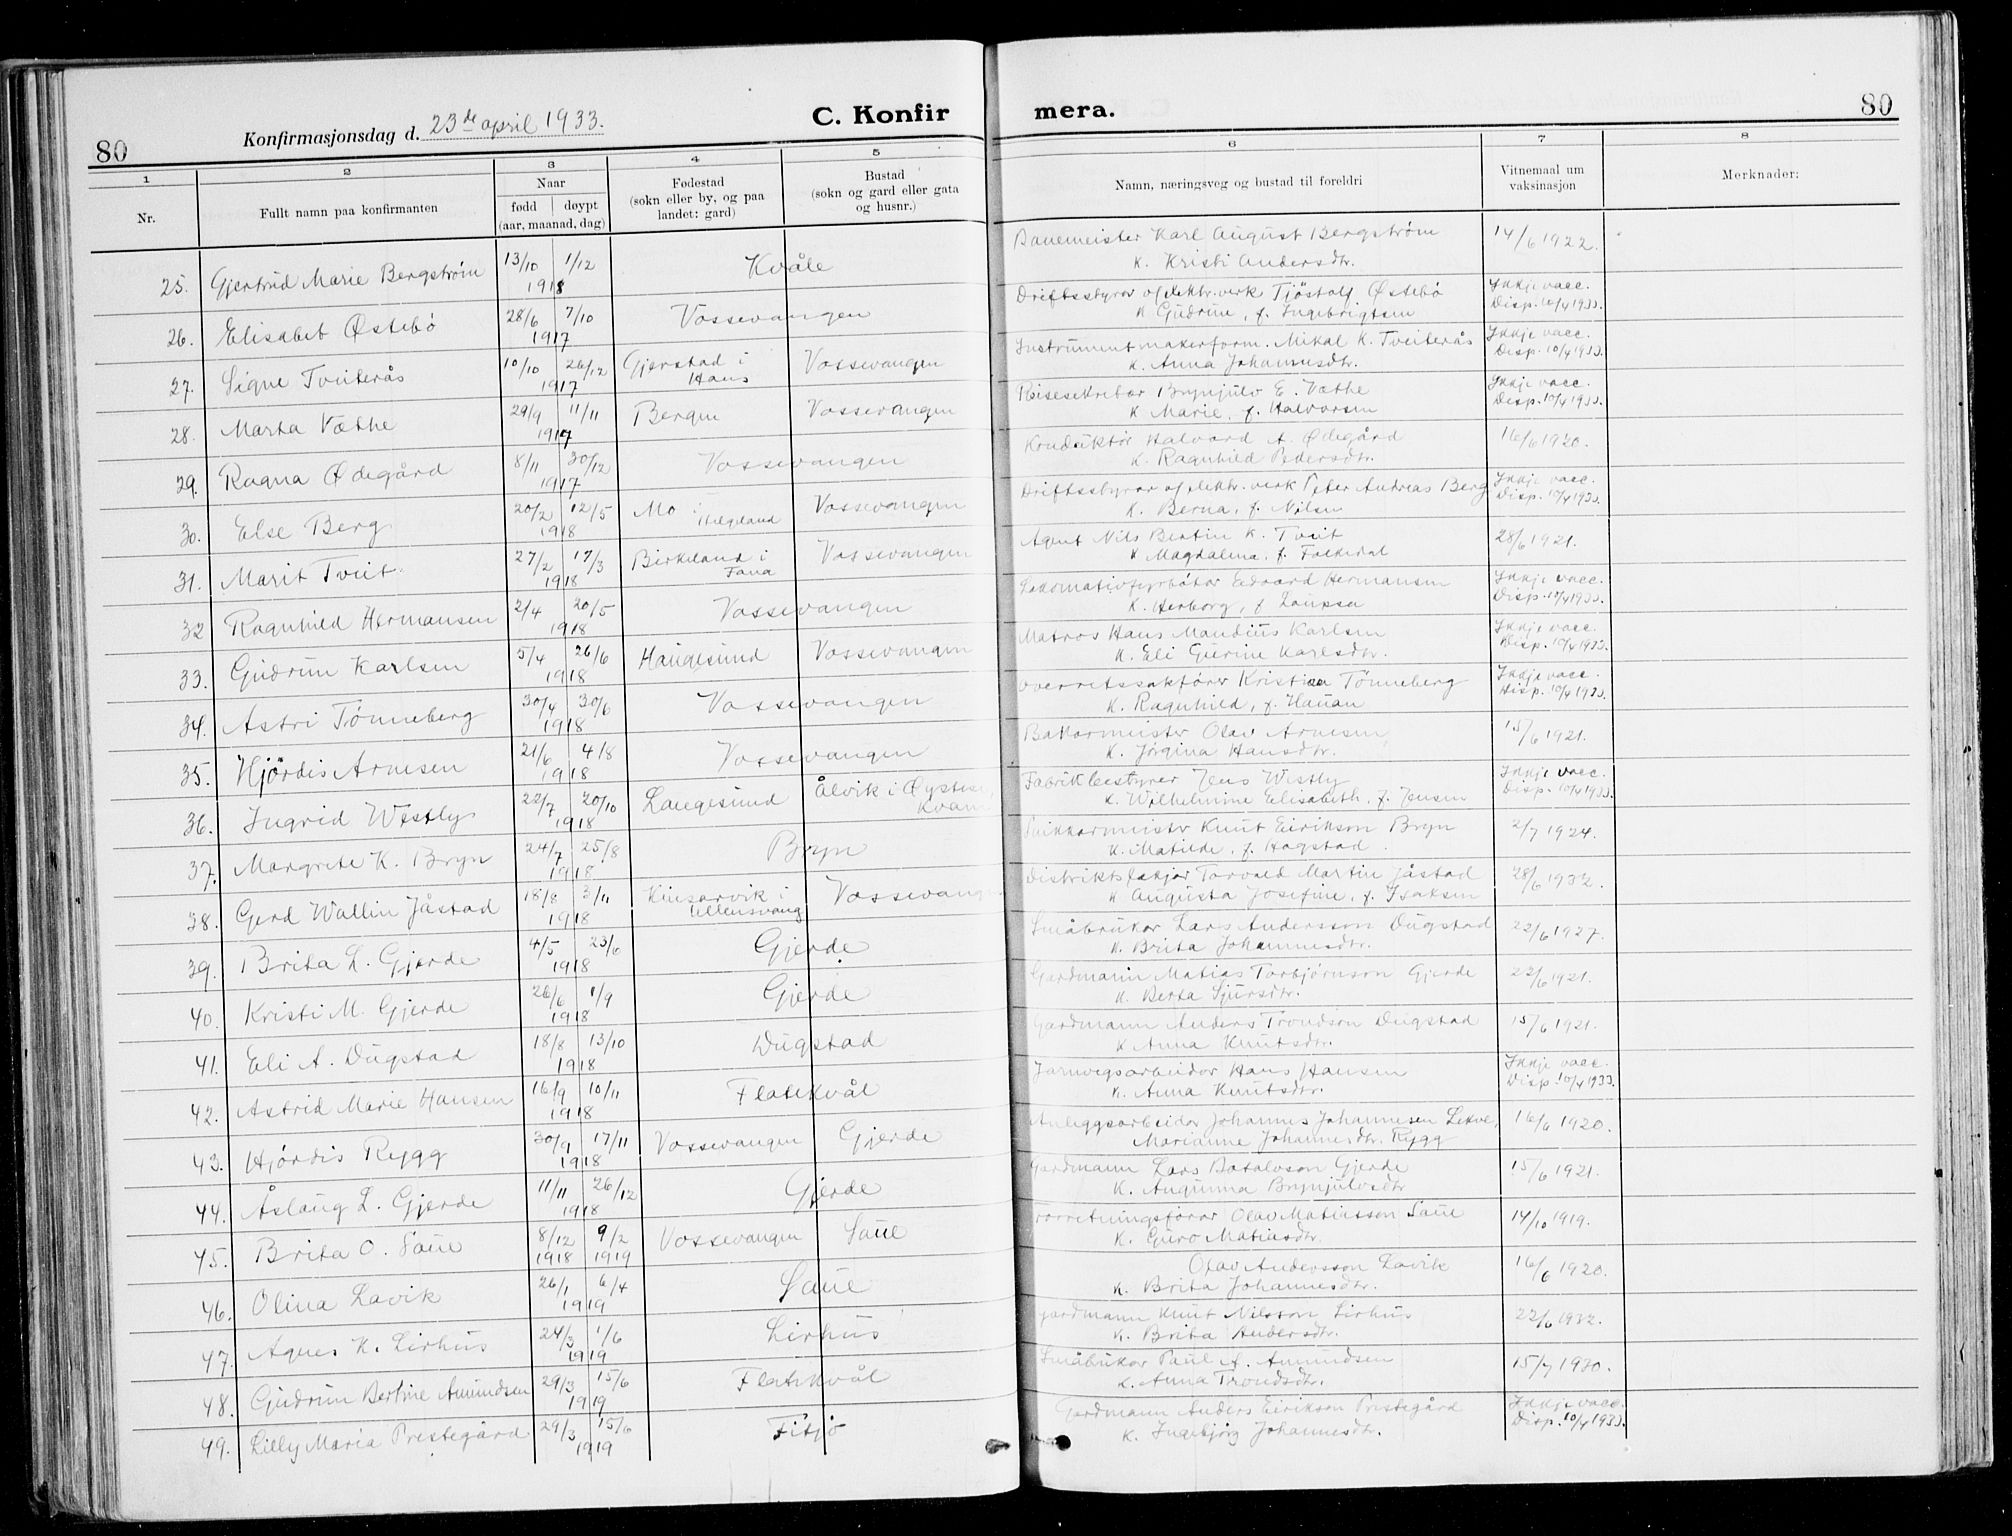 80
Konfirmasjonsdag d. 23de april 1933.
C. Konfir
mera.
80
1
2
3
4
5
6
7
8
Nr.
Fullt namn paa konfirmanten
Naar
født | døypt
(aar, maanad, dag)
Fødestad
(sokn eller by, og paa
landet: gard)
Bustad
(sokn og gard eller gata
og husnr.)
Namn, næringsveg og bustad til foreldri
Vitnemaal um
vaksinasjon
Merknader:
25. Gjertrud Marie Bergström 13/10 1/12 1918 Kvåle
Banemeister Karl August Bergström 14/6 1922.
K. Kristi Andersdtr.
26. Elisabet Østebö 28/6 7/10 1917 Vossevangen
Driftsstyrar of elektr. verk Tjöstolf Østebö Ikkje vacc.
K Gudrun, f. Ingebrigtsen Disp. 10/4 1933.
27. Signe Tveiterås 10/10 26/12 1917 Gjerstad i Haus Vossevangen
Instrumentmakerform. Mikal K. Tveiterås Ikkje vacc.
K. Anna Johannesdtr. Disp. 10/4 1933.
28. Marta Væthe 29/9 11/11 1917 Bergen Vossevangen
Reisesekretær Brynjulv E. Væthe Ikkje vacc.
K Marie, f. Halvorsen Disp. 10/4 1933.
29. Ragna Ødegård 8/11 30/12 1917 Vossevangen
Konduktör Halvard A. Ødegård 16/6 1920.
K. Ragnhild Pedersdtr.
30. Else Berg 20/2 12/5 1918 Mo i Helgeland Vossevangen
Driftsstyrar of elektr. verk Peter Andreas Berg Ikkje vacc.
K. Berna, f. Nilsen Disp. 10/4 1933.
31. Marit Tveit 27/2 17/3 1918 Birkeland i Fana Vossevangen
Agent Nils Bertin K. Tveit 28/6 1921.
K Magdalena, f. Folkedal
32 Ragnhild Hermansen 2/4 20/5 1918 Vossevangen
Lokomotivfyrbötar Edvard Hermansen Ikkje vacc.
K. Herborg, f Laupsa Disp. 10/4 1933.
33. Gudrun Karlsen 5/4 26/6 1918 Haugesund Vossevangen
Matros Hans Mandius Karlsen Ikkje vacc.
K. Eli Gurine Karlsdtr. Disp. 10/4 1933.
34. Astri Tönneberg 30/4 30/6 1918 Vossevangen
Overretssakförer Kristian Tönneberg Ikkje vacc.
K. Ragnhild, f. Hauan Disp. 10/4 1933.
35. Hjördis Arnesen 21/6 4/8 1918 Vossevangen
Bakarmeister Olav Arnesen 15/6 1921.
K. Jörgina Hansdtr.
36. Ingrid Westly 22/7 20/10 1918 Langesund Ålvik i Øystese, Kvam
Fabrikkbestyrer Jens Westly Ikkje vacc.
K. Wilhelmine Elisabeth, f. Jensen Disp. 10/4 1933.
37. Margrete K. Bryn 24/7 25/8 1918 Bryn
Knut Eirikson Bryn 2/7 1924.
K. Matilde, f. Hagstad.
38. Gerd Wallin Jåstad 18/8 3/11 1918 Kinsarvik i Ullensvang Vossevangen
Torvald Martin Jåstad 28/6 1932.
K Augusta Josefine, f. Isaksen
39. Brita L. Gjerde 4/5 23/6 1918 Gjerde
Småbrukar Lars Andersson Dugstad 22/6 1927.
K. Brita Johannesdtr.
40. Kristi M. Gjerde 26/6 1/9 1918 Gjerde
Gardmann Matias Torbjörnson Gjerde 22/6 1921.
K. Berta Sjursdtr.
41. Eli A. Dugstad 18/8 13/10 1918 Dugstad
Gardmann Anders Trondson Dugstad 15/6 1921.
K Anna Knutsdtr.
42. Astrid Marie Hansen 16/9 10/11 1918 Flatekvål
Jarnvegsarbeidar Hans Hansen Ikkje vacc.
K. Anna Knutsdtr. Disp. 10/4 1933.
43. Hjördis Rygg 30/9 17/11 1918 Vossevangen Gjerde
Anleggsarbeidar Johannes Johannesen Lekve, 16/6 1920.
Marianne Johannesdtr. Rygg
44. Åslaug L. Gjerde 11/11 26/12 1918 Gjerde
Gardmann Lars Botolvson Gjerde 15/6 1921.
K. Angunna Brynjulvsdtr
45. Brita O. Saue 8/12 1918 9/2 1919 Vossevangen Saue
Forretningsförar Olav Matiasson Saue 14/10 1919.
K. Guro Matiasdtr.
46. Olina Lavik 26/1 6/4 1919 Saue
Olav Andersson Lavik 16/6 1920.
K. Brita Johannesdtr.
47. Agnes K. Lirhus 24/3 1/6 1919 Lirhus
Gardmann Knut Nilsson Lirhus 22/6 1932.
K. Brita Andersdtr.
48. Gudrun Bertine Amundsen 29/3 15/6 1919 Flatekvål
Småbrukar Paul A. Amundsen 15/7 1930.
K. Anna Trondsdtr.
49. Lilly Maria Prestegård 29/3 15/6 1919 Fitjo
Gardmann Anders Eirikson Prestegård Ikkje vacc.
K. Ingebjörg Johannesdtr. Disp. 10/4 1933.